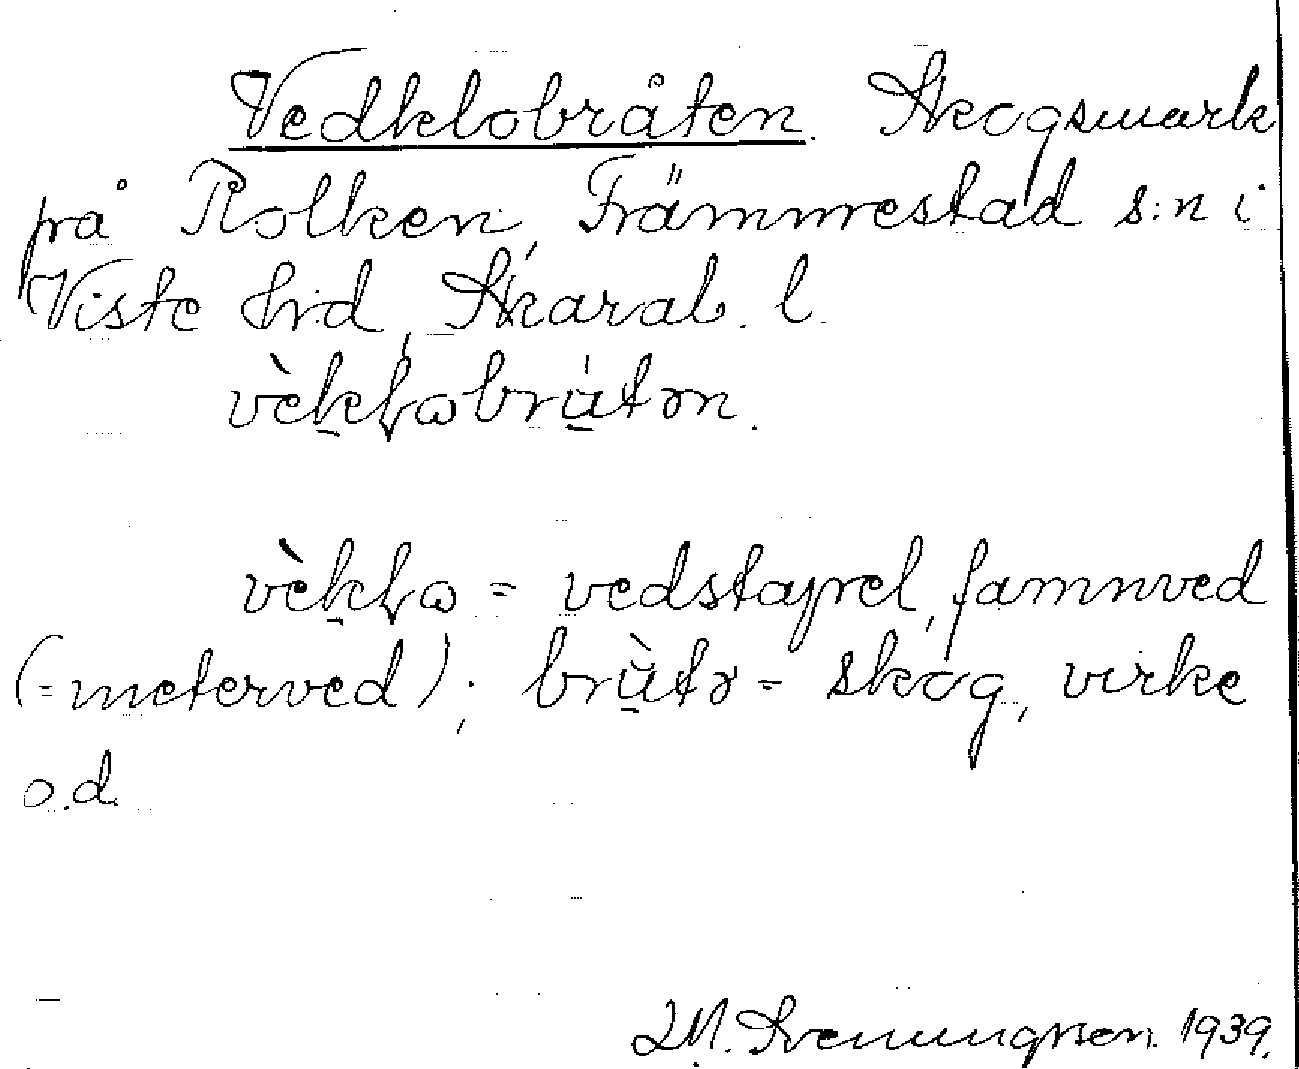 Vedklobråten. Skogsmark
på Rolken, Främmestad s:n i
Viste hrd, Skarab. l.
vèkłɷbrùtən.
vèkłɷ = vedstapel, famnved
(=meterved); brùtə = skog, virke
o.d.
Svenungsson. 1939.